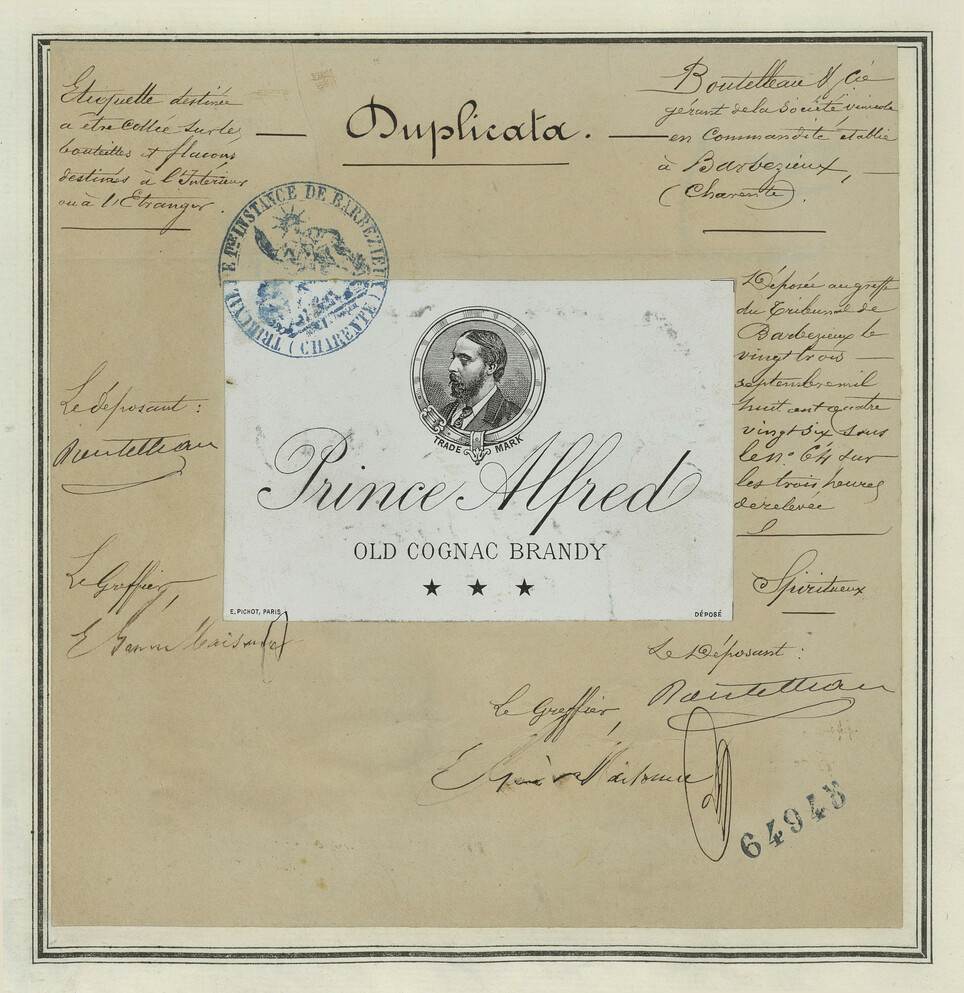 Etiquette destinée
a être collée sur les
bouteilles et flacons
destinés à l'Intérieur
ou à l'Etranger.
Duplicata.
Boutelleau & Cie
gérant de la Société vinicole
en Commandite établie
à Barbezieux,
(Charente).
TRIBUNAL DE 1ère INSTANCE DE BARBEZIEUX (CHARENTE)
Déposée au greffe
du Tribunal de
Barbezieux le
vingt trois
septembre mil
huit cent quatre
vingt six sous
le no. 64 sur
les trois heures
de relevée
Le déposant :
Boutelleau
Le Greffier,
TRADE MARK
Prince Alfred
OLD COGNAC BRANDY
★ ★ ★
E. PICHOT, PARIS
DÉPOSÉ
Spiritueux
Le Déposant :
Boutelleau
Le Greffier,
64948